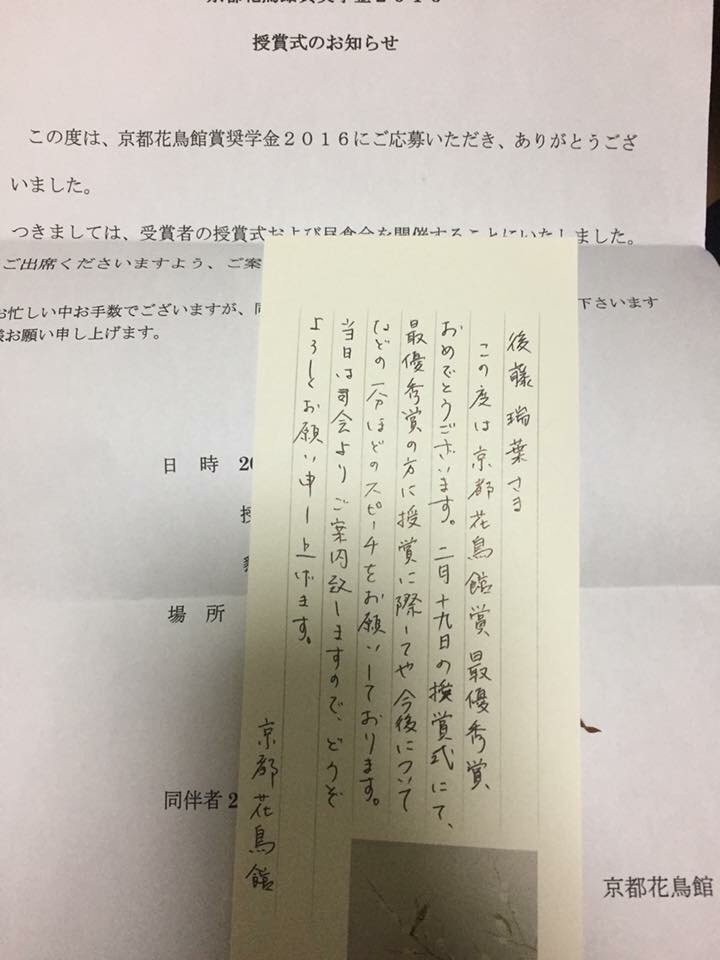 授賞式のお知らせ
この度は、京都花鳥館賞奨学金2016にご応募いただき、ありがとうござ
いました。
つきましては、受賞者の授賞式および昼食会を開催することにいたしました。
ご出席くださいますよう、ご案
お忙しい中お手数でございますが、同
下さいます
お願い申し上げます。
日 時 20
授
場 所
同伴者2
京都花鳥館
後藤瑞葉さま
この度は京都花鳥館賞最優秀賞
おめでとうございます。二月十九日の授賞式にて、
最優秀賞の方に授賞に際してや今後について
などの一分ほどのスピーチをお願いしております。
当日は司会よりご案内致しますので、どうぞ
よろしくお願い申し上げます。
京都花鳥館